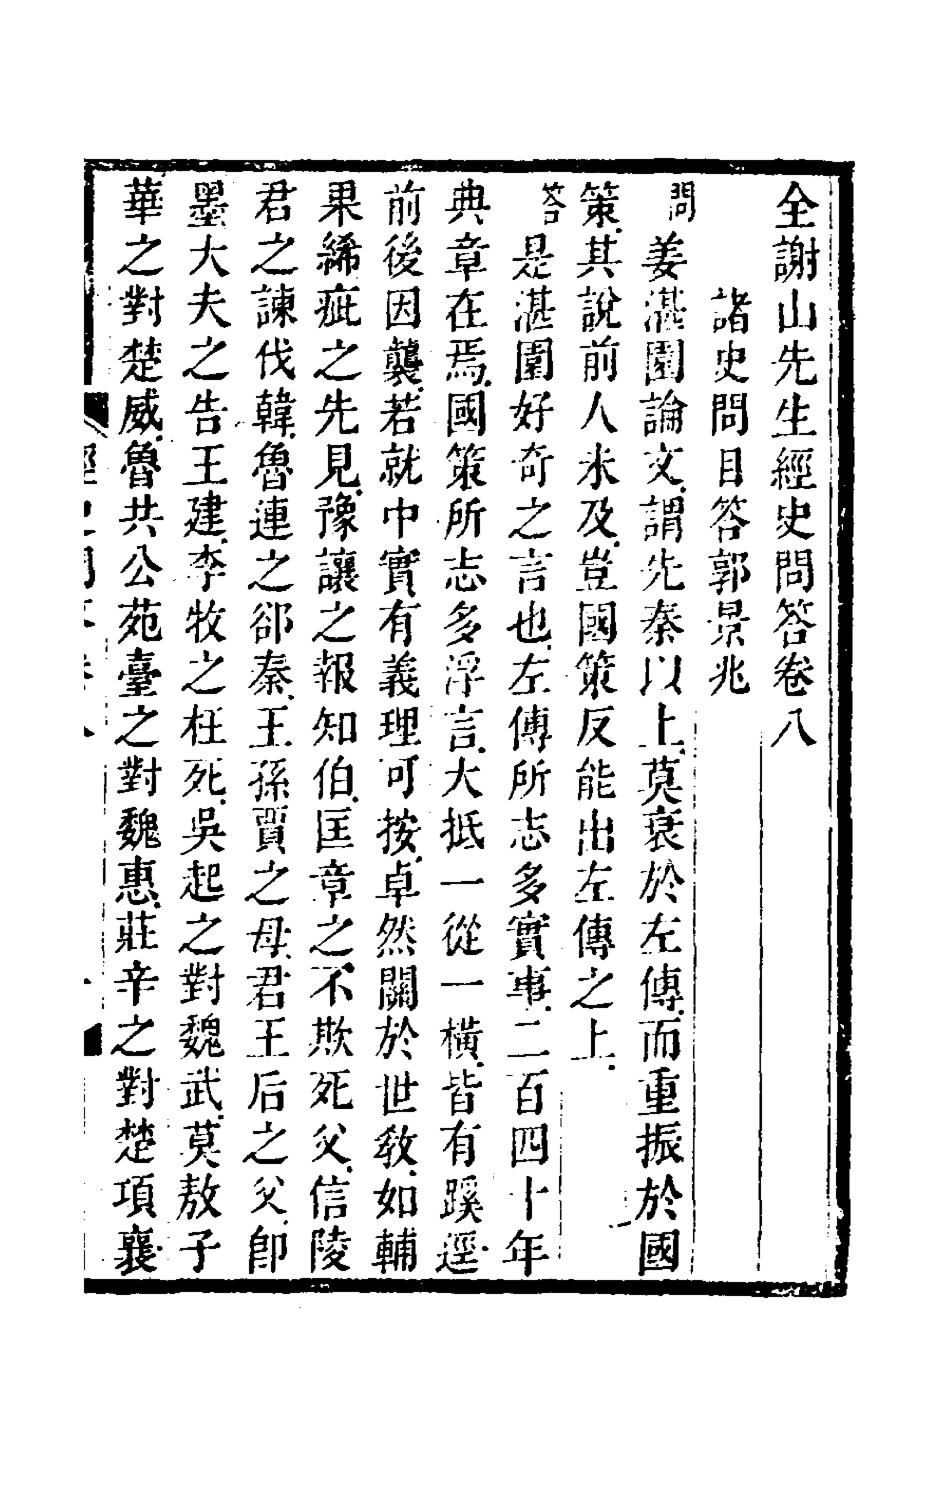 全謝山先生經史問答卷八
諸史問目答郭景兆
問姜湛園論文謂先秦以上莫衰於左傳而重振於國
策其說前人未及豈國策反能出左傳之上
答是湛園好奇之言也左傳所志多實事二百四十年
典章在焉國策所志多浮言大抵一從一橫皆有蹊徑
前後因襲若就中實有義理可按卓然關於世教如輔
果絺疵之先見豫讓之報知伯匡章之不欺死父信陵
君之諫伐韓魯連之郤秦王孫賈之母君王后之父卽
墨大夫之告王建李牧之枉死吳起之對魏武莫敖子
華之對楚威魯共公苑臺之對魏惠莊辛之對楚項襄